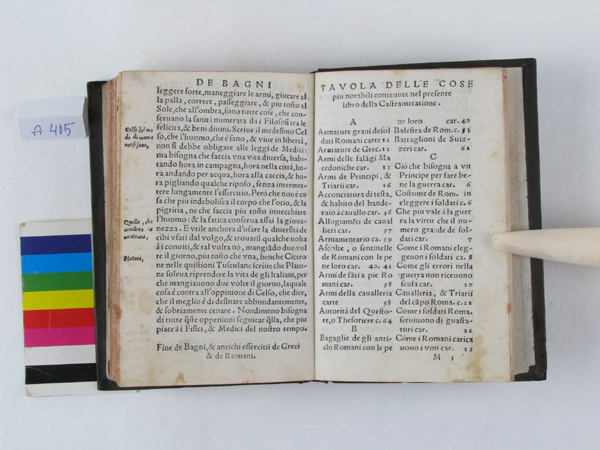 A 405
DE BAGNI
leggere forte, maneggiare le armi, giucare al
la palla, correre, passeggiare, & piu tosto al
Sole, che all'ombra, sono tutte cose, che con-
seruano la sanità numerata da i Filosofi tra le
felicità, & beni diuini. Scriue il medesimo Cel
so, che l'huomo, che è sano, & viue in libertà,
non si debbe obligare alle leggi de Medici:
ma bisogna che faccia vna vita diuersa, habi-
tando hora in campagna, hora nella città, ho-
ra andando per acqua, hora alla caccia, & ho-
ra pigliando qualche riposo, senza interme-
tere lungamente l'essercitio. Però che non è co
sa che piu indebolisca il corpo che l'otio, & la
pigritia, ne che faccia piu tosto inuecchiare
l'huomo: & la fatica conserua assai la gioua-
nezza. E vtile anchora d'usare la diuersità de
cibi vsati dal volgo, & trouarsi qualche uolta
a i conuiti, & tal volta nò, mangiãdo due vol
te il giorno, piu tosto che vna, benche Cicero
ne nelle quistioni Tusculane scriue che Plato-
ne solea riprendere la vita de gli Italiani, per
che mangiauono due volte il giorno, laquale
cosa è contra all'oppinione di Celso, che dice,
che il meglio è di desinare abbondantemente,
& sobriamente cenare. Nondimeno bisogna
di tutte queste oppenioni seguitar quella, che piu
piace a i Fisici, & Medici del nostro tempo.
Fine de Bagni, & antichi essercitii de Greci
& de Romani.
Platone,
TAVOLA DELLE COSE
piu notabili contenute nel presente
libro della Castrametatione.
A
Armature graui de sol
dati Romani carte 12
Armature de Grec. 12
Armi delle falãgi Ma
cedoniche car. 12
Armi de Principi, &
Triarii car. 16
Acconciatura di testa,
& habito del bande-
raio à cauallo car. 16
Allogiamẽti de caual
lieri car. 27
Armamentario ca. 29
Ascolte, o sentinelle
de Romani con le pe
ne loro car. 40. 41
Armi de fãti a pie Ro
mani car. 58
Armi della caualleria
carte 58
Autorità del Questo-
re, o Thesoriere c. 64
B
Bagaglie de gli anti-
chi Romani con le pe
ne loro car. 40
Balestra de Rom. c. 51
Battaglioni de Suiz-
zeri car. 61
C
Ciò che bisogna a vn
Principe per fare be-
ne la guerra car. 6
Costume de Rom. in
eleggere i soldati c. 6
Che piu vale à la guer
ra la virtu che il nu-
mero grande de sol-
dati car. 7
Come i Romani eleg-
geuon i soldati ca. 8
Come gli errori nella
guerra non riceuono
scusa car. 20
Caualleria, & Triarii
del cãpo Roma. c. 21
Come i soldati Roma.
seruiuono di guasta-
tori car. 22
Come i Romani carica
uono i vini car. 23
M